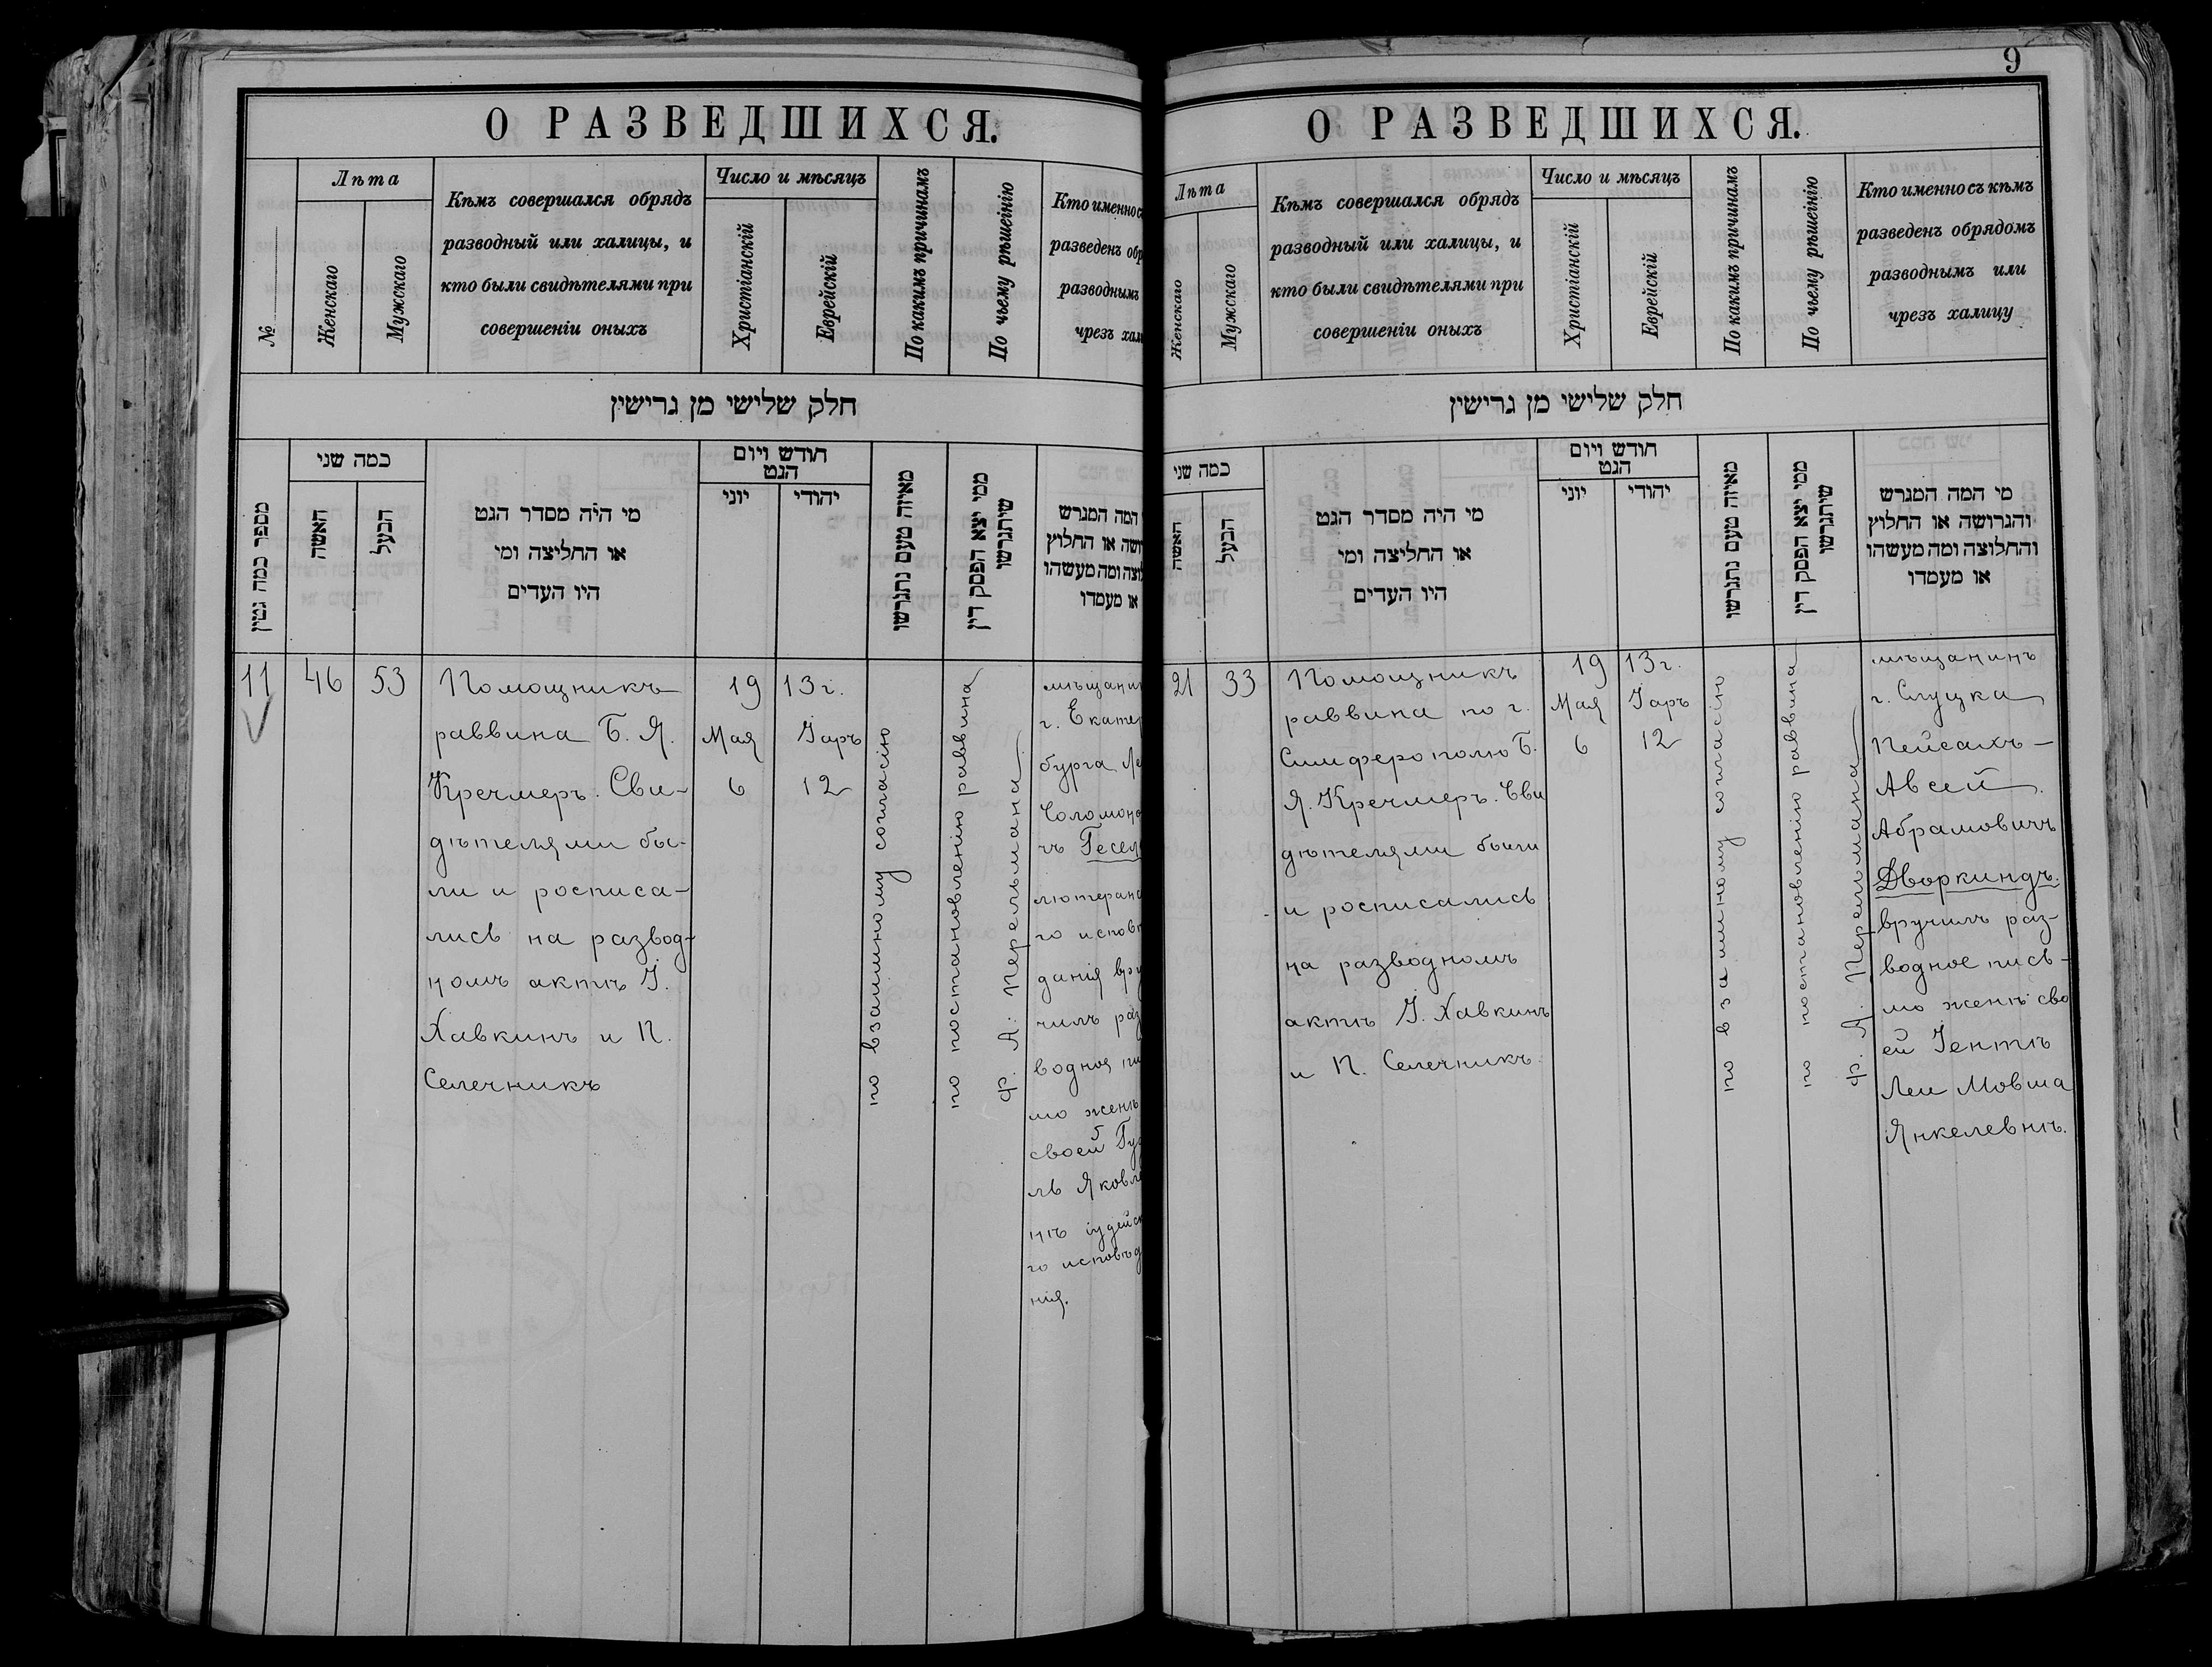 О РАЗВЕДШИХСЯ.
№
Лѣта
Женскаго
Мужскаго
Кѣмъ совершался обрядъ
разводный или халицы, и
кто были свидѣтелями при
совершеніи оныхъ
Число и мѣсяцъ
Христіанскій
Еврейскій
По какимъ причинамъ
По чьему рѣшеінію
Кто именно с
разведенъ обр
разводнымъ
чрезъ хал
חלק שלישי מן גרישין
מספר כמה גטין
כמה שני
האשה
הבעל
מי היה מסדר הגט
או החליצה ומי
היו העדים
חודש ויום
הגט
יוני
יהודי
מאיזה טעם נתגרשו
ממי יצא הפסק דין
שיתגרשו
המה המגרש
ושה או החלוץ
לוצה ומה מעשהו
או מעמדו
11
46
53
Помощникъ
раввина Б. Я.
Кречмеръ. Сви-
дѣтелями бы-
ли и росписа-
лись на развод-
номъ актѣ I.
Хавкинъ и П.
Селечникъ
19 13 г.
Мая Iаръ
6 12
по взаимному согласію
по постановленію раввина
ф. А. Перельмана
мѣщанин
г. Екатер
бурга Ле
Соломоно
чъ Гесел
лютеранс
го исповѣ
данія вру
чилъ раз
водное пи
мо женѣ
своей Гу
лѣ Яковле
нѣ іудейск
го исповѣд
нія.
9
О РАЗВЕДШИХСЯ.
Лѣта
Женскаго
Мужскаго
Кѣмъ совершался обрядъ
разводный или халицы, и
кто были свидѣтелями при
совершеніи оныхъ
Число и мѣсяцъ
Христіанскій
Еврейскій
По какимъ причинамъ
По чьему рѣшеінію
Кто именно съ кѣмъ
разведенъ обрядомъ
разводнымъ или
чрезъ халицу
חלק שלישי מן גרישין
כמה שני
האשה
הבעל
מי היה מסדר הגט
או החליצה ומי
היו העדים
חודש ויום
הגט
יוני
יהודי
מאיזה טעם נתגרשו
ממי יצא הפסק דין
שיתגרשו
מי המה המגרש
והגרושה או החלוץ
והחלוצה ומה מעשהו
או מעמדו
21
33
Помощникъ
раввина по г.
Симферополю Б.
Я. Кречмеръ. Сви
дѣтелями были
и росписались
на разводномъ
актѣ I. Хавкинъ
и П. Селечникъ.
19 13 г.
Мая Iаръ
6 12
по взаимному согласію
по постановленію раввина
ф. А. Перельмана
мѣщанинъ
г. Слуцка
Пейсахъ-
Авсей
Абрамовичъ
Дворкиндъ.
вручилъ раз-
водное пись-
мо женѣ сво
ей Iентѣ
Леи Мовша
Янкелевнѣ.